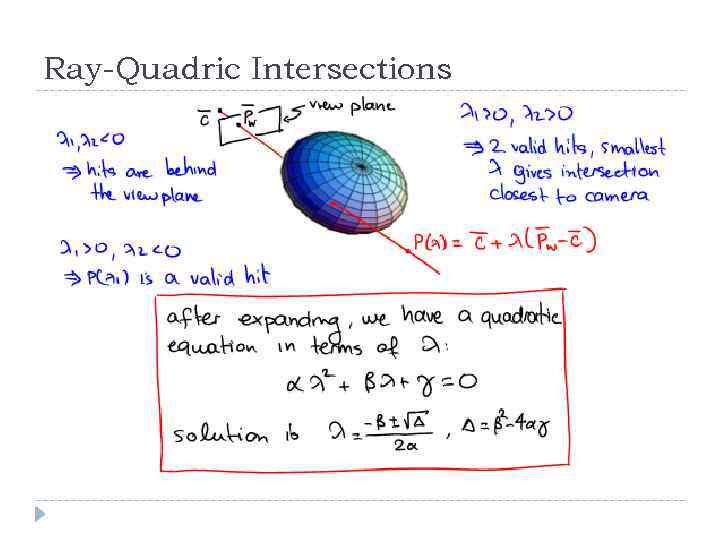 Ray-Quadric Intersections
C̅ P̅w view plane
λ1, λ2 < 0
⇒ hits are behind
the view plane
λ1 > 0, λ2 > 0
⇒ 2 valid hits, smallest
λ gives intersection
closest to camera
P(λ) = C̅ + λ(P̅w - C̅)
λ1 > 0, λ2 < 0
⇒ P(λ1) is a valid hit
after expanding, we have a quadratic
equation in terms of λ:
αλ² + βλ + γ = 0
solution is λ = (-β ± √Δ) / 2α , Δ = β² - 4αγ